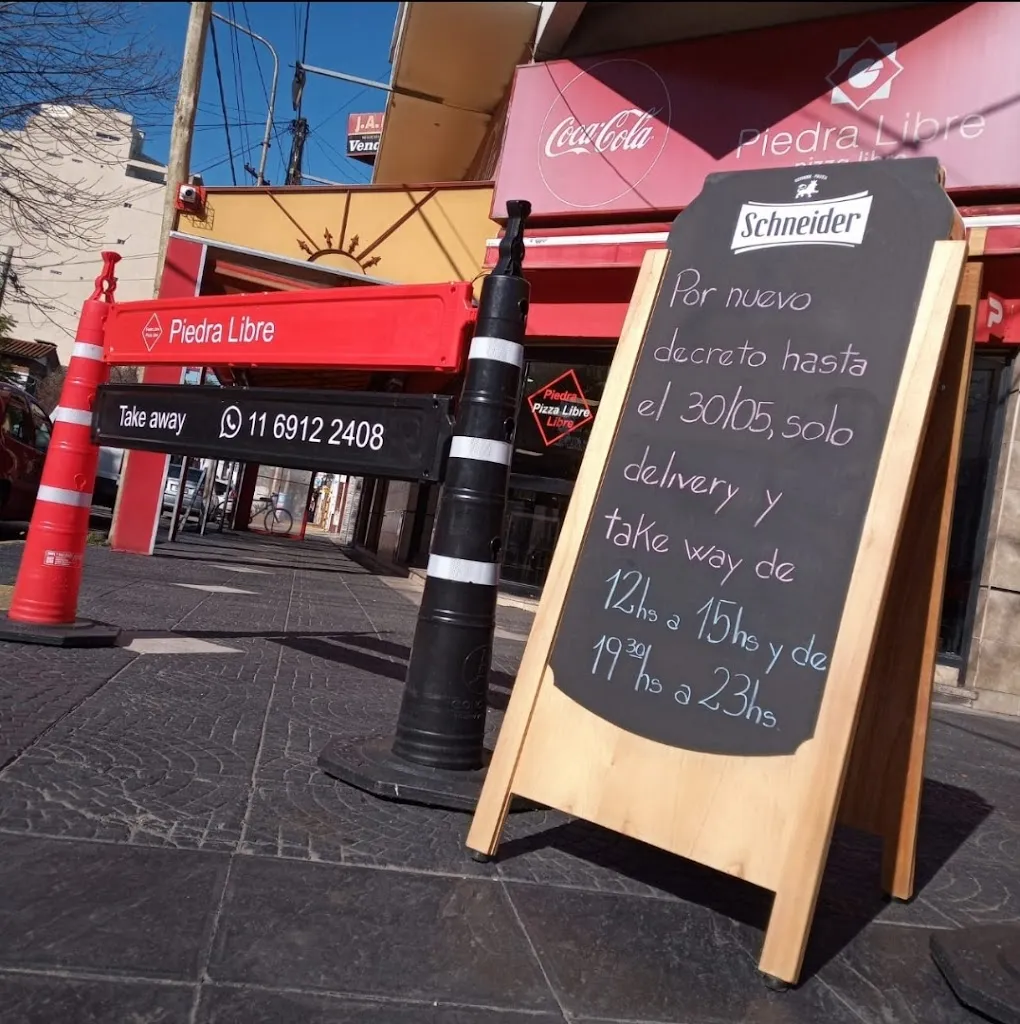 J.A.
Vend
Coca-Cola
Piedra Libre
pizza libre
Schneider
Por nuevo
decreto hasta
el 30/05, solo
delivery y
take way de
12hs a 15hs y de
19³⁰hs a 23hs.
Piedra Libre
Take away 11 6912 2408
Piedra
Pizza Libre
Libre
P